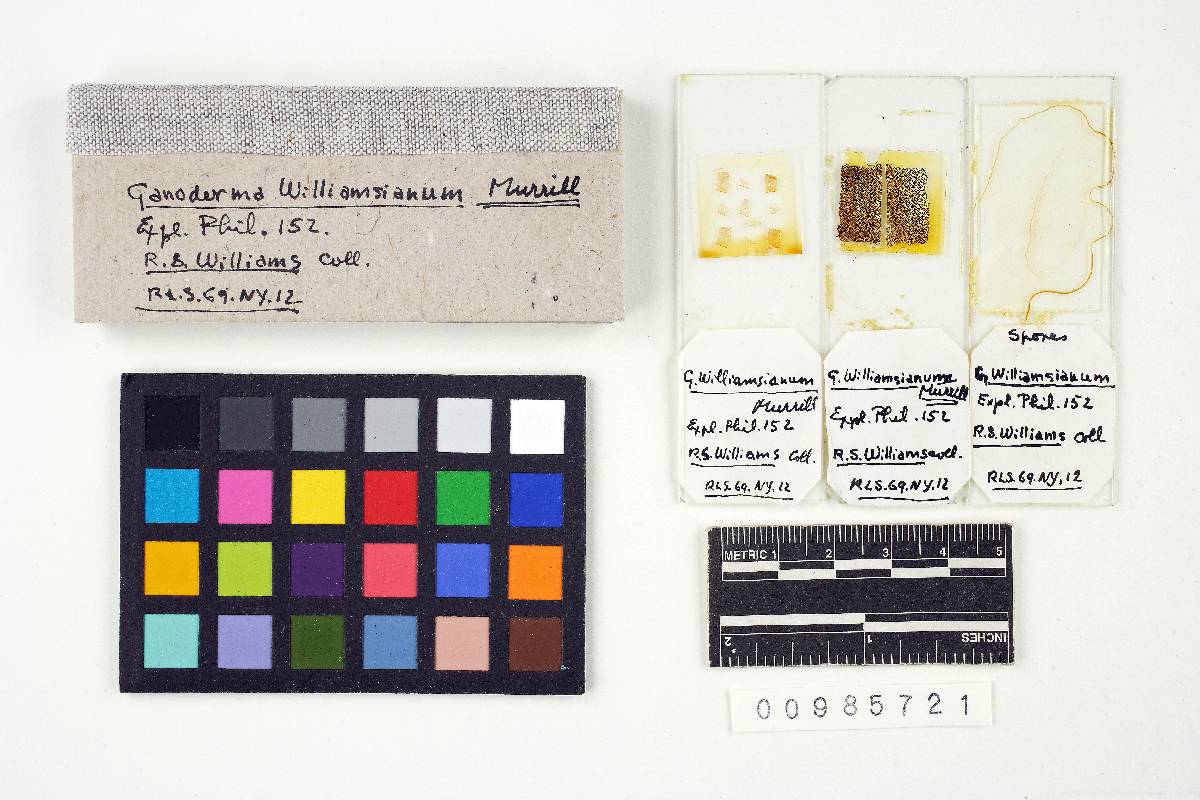 Ganoderma Williamsianum Murrill
Expl. Phil. 152.
R.S. Williams Coll.
RLS.69.NY.12
G. Williamsianum
Murrill
Expl. Phil. 152
R.S. Williams Coll.
RLS.69.NY.12
G. Williamsianum
Murrill
Expl. Phil. 152
R.S. Williams coll.
RLS.69.NY.12
Spores
G. Williamsianum
Expl. Phil. 152
R.S. Williams Coll
RLS.69.NY,12
METRIC 1 2 3 4 5
2 1 INCHES
00985721